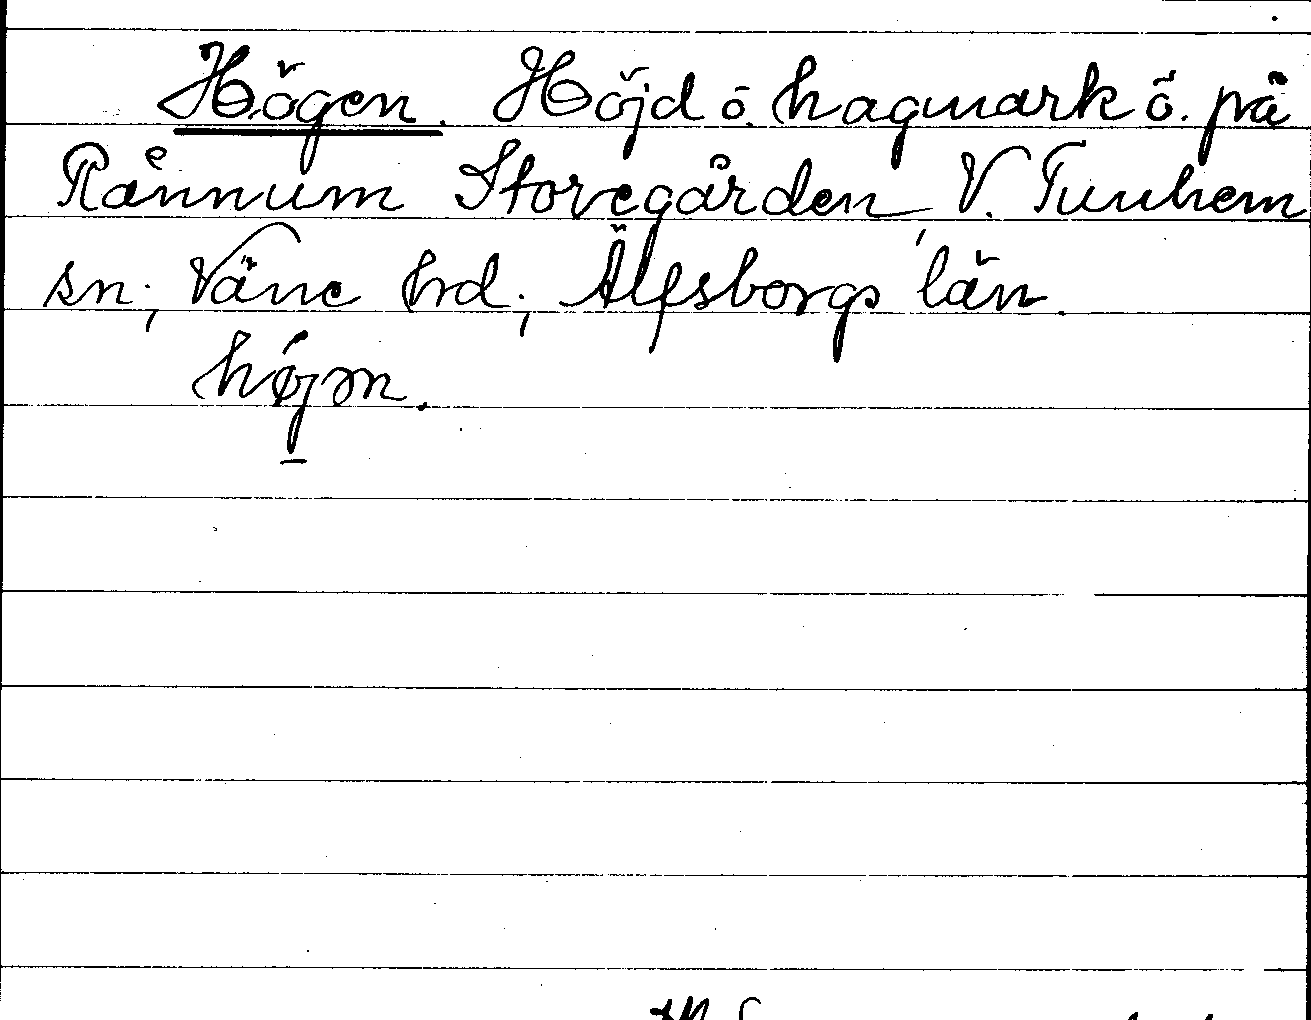 Högen. Höjd o. hagmark ö. på
Rånnum Storegården, V. Tunhem
sn; Väne hrd; Älfsborgs län.